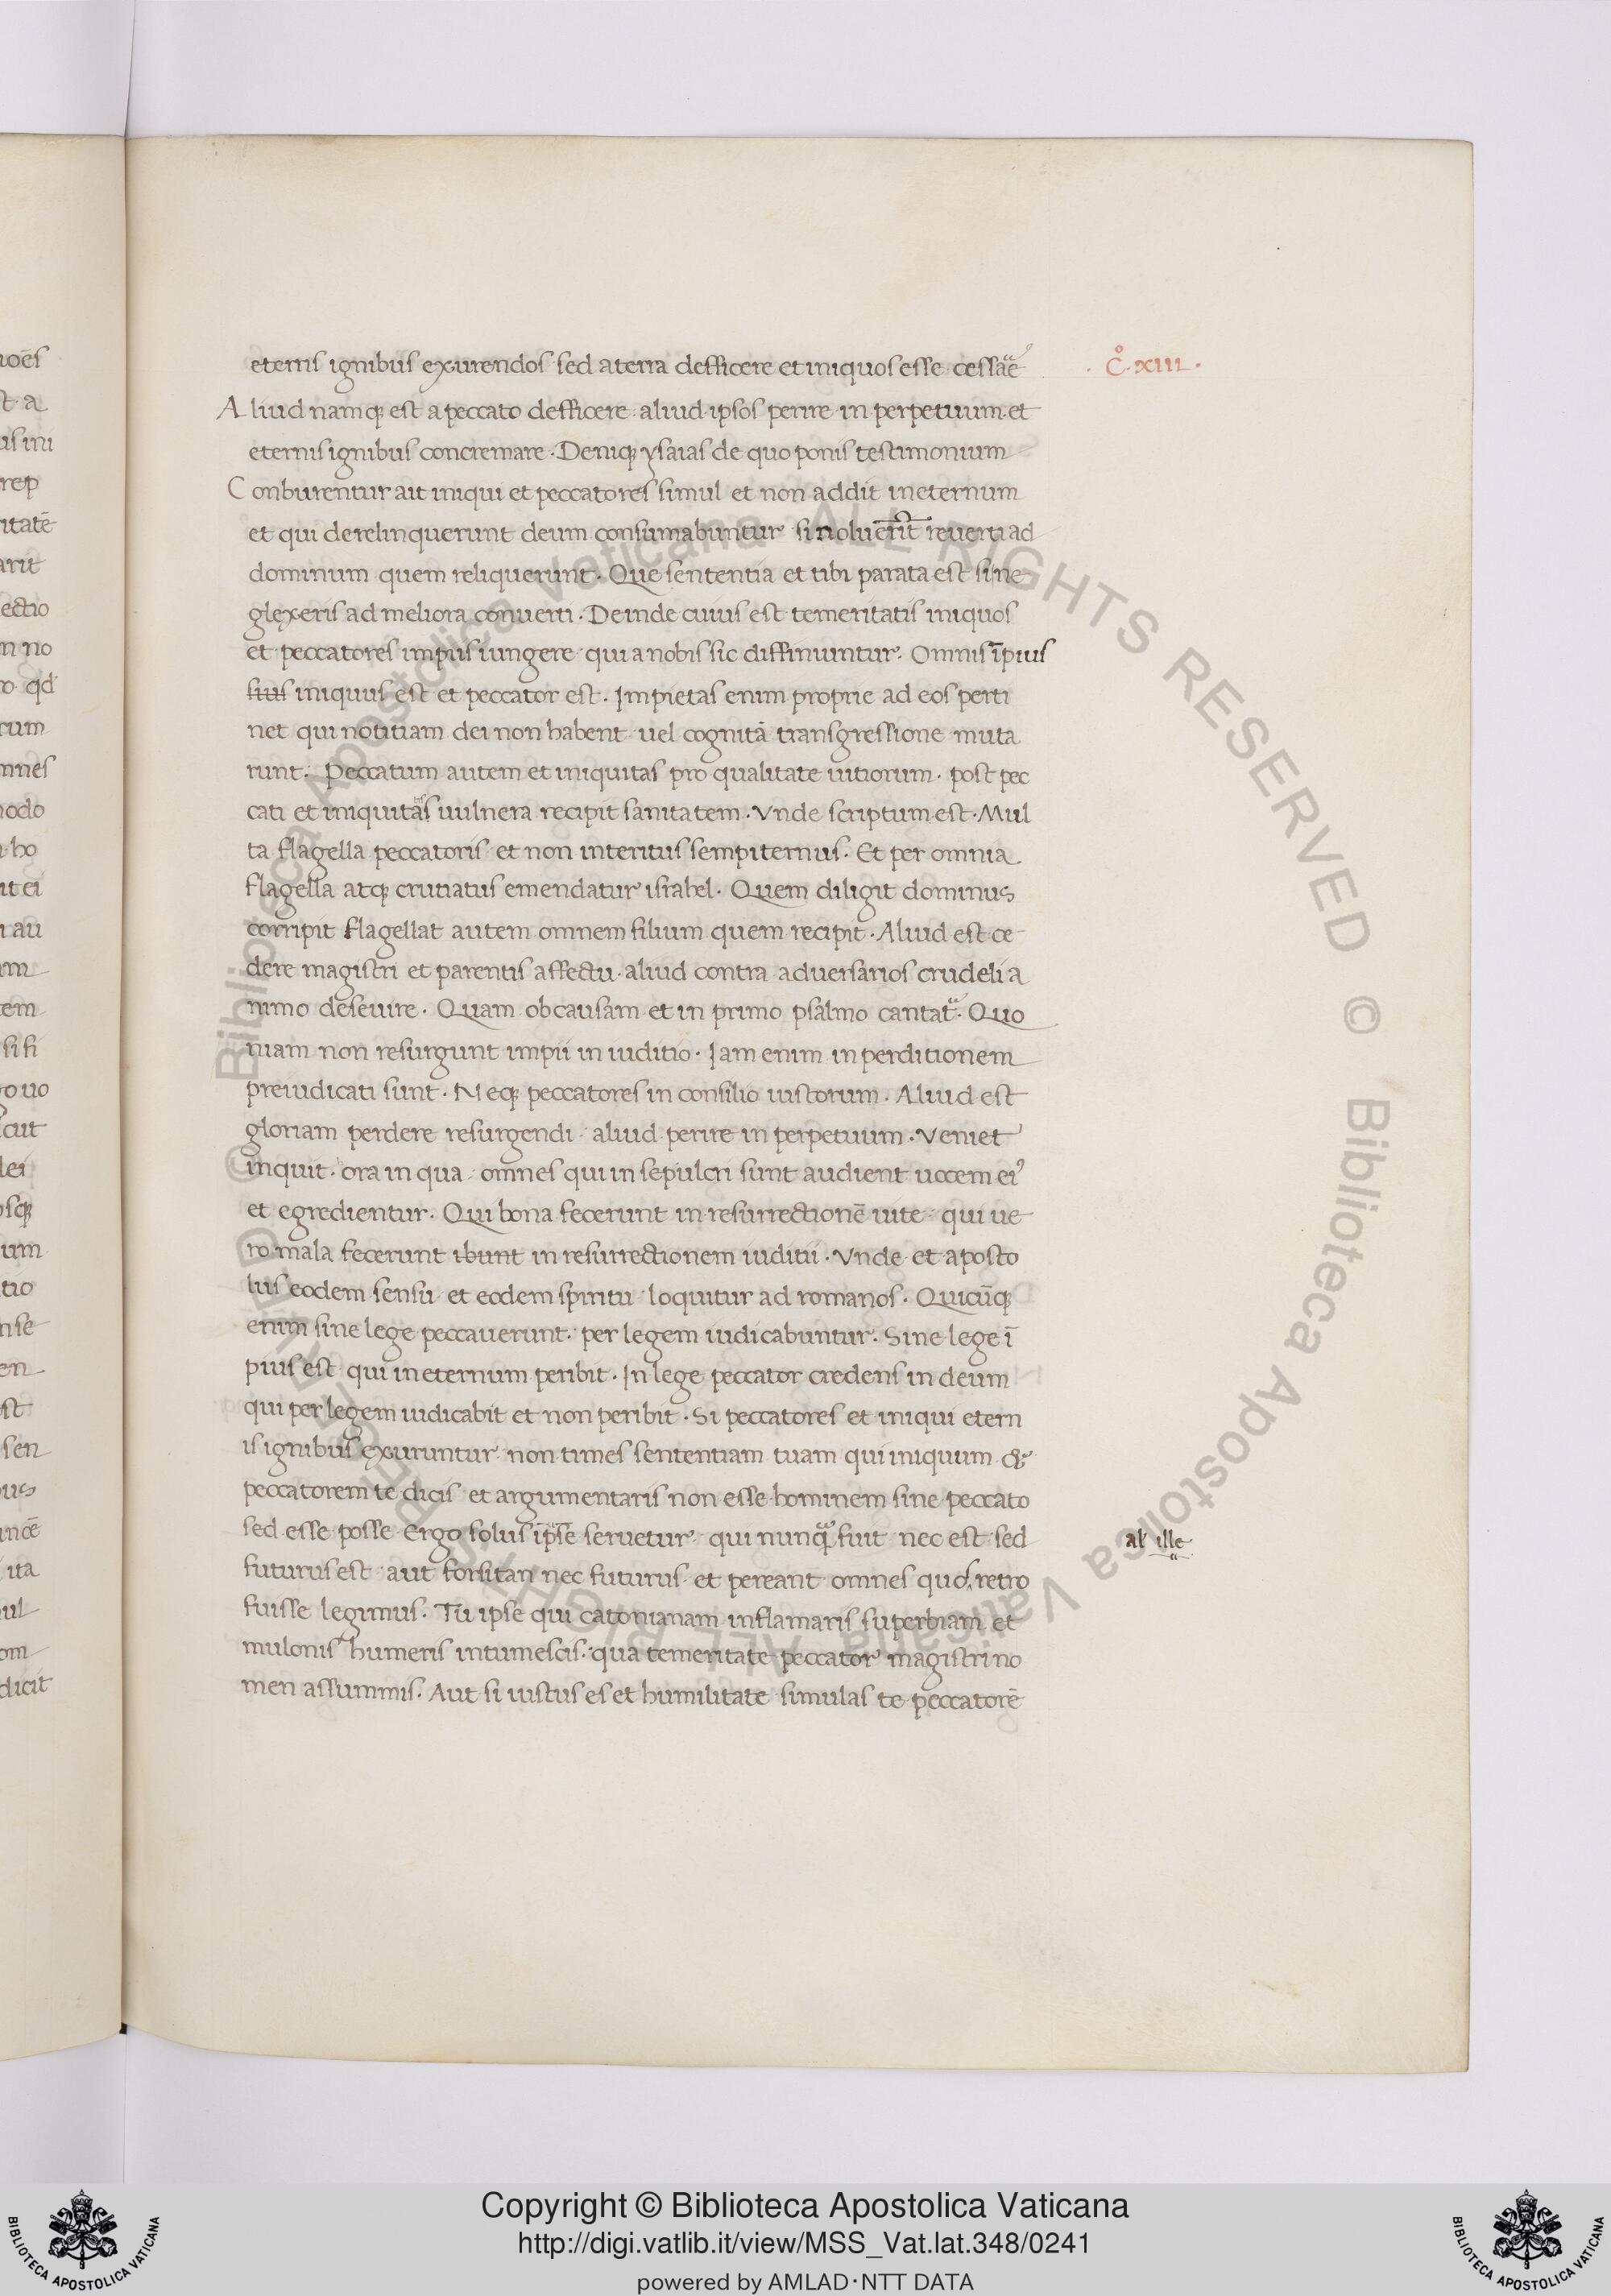 eterris ignibus exurendos sed a terra defficere et iniquos esse cessāē
C̊. XIII.
Aliud namq; est a peccato defficere aliud ipsos perire in perpetuum et
eternis ignibus concremare. Deniq; ysaias de quo ponis testimonium
Conburentur ait iniqui et peccatores simul et non addit in eternum
et qui derelinquerunt deum consumabuntur si noluerīt reverti ad
dominum quem reliquerunt. Que sententia et tibi parata est si ne
glexeris ad meliora converti. Deinde cuius est temeritatis iniquos
et peccatores impiis iungere qui a nobis sic diffiniuntur. Omnis īpius
iniquus est et peccator est. Impietas enim proprie ad eos perti
net qui notitiam dei non habent uel cognitā transgressione muta
runt. Peccatum autem et iniquitas pro qualitate uitiorum. post pec
cati et iniquitās uulnera recipit sanitatem. Vnde scriptum est. Mul
ta flagella peccatoris et non interitus sempiternus. Et per omnia
flagella atq; crutiatus emendatur israhel. Quem diligit dominus
corripit flagellat autem omnem filium quem recipit. Aliud est ce
dere magistri et parentis affectu aliud contra adversarios crudeli a
nimo desevire. Quam ob causam et in primo psalmo cantat. Quo
niam non resurgunt impii in iuditio. Iam enim in perditionem
preiudicati sunt. Neq; peccatores in consilio iustorum. Aliud est
gloriam perdere resurgendi aliud perire in perpetuum. Veniet
inquit. ora in qua omnes qui in sepulcri sunt audient uocem ei9
et egredientur. Qui bona fecerunt in resurrectionē uite qui ue
ro mala fecerunt ibunt in resurrectionem iuditii. Vnde et aposto
lus eodem sensu et eodem spiritu loquitur ad romanos. Quicūq;
enim sine lege peccaverunt. per legem iudicabuntur. Sine lege ī
pius est qui in eternum peribit. In lege peccator credens in deum
qui per legem iudicabit et non peribit. Si peccatores et iniqui etern
is ignibus exuruntur non times sententiam tuam qui iniquum &
peccatorem te dicis et argumentaris non esse hominem sine peccato
sed esse posse Ergo solus ipse seruetur qui nunq̄ fuit nec est sed
al' ille
futurus est aut forsitan nec futurus et pereant omnes quos retro
fuisse legimus. Tu ipse qui catonianam inflamaris superbiam et
mulonis humeris intumescis. qua temeritate peccator magistri no
men assummis. Aut si iustus es et humilitate simulas te peccatorē
Copyright © Biblioteca Apostolica Vaticana
http://digi.vatlib.it/view/MSS_Vat.lat.348/0241
powered by AMLAD·NTT DATA